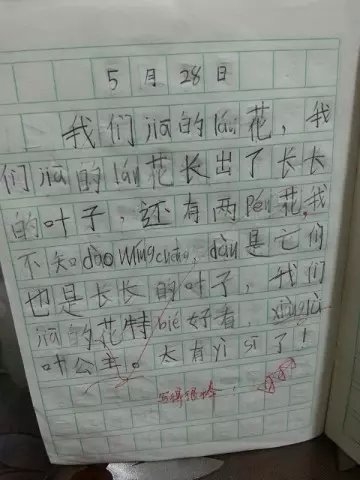 5月28日
我们jiā的lán花，我
们jiā的lán花长出了长长
的叶子，还有两pén花，我
不知dào míngchēn，dàn是它们
也是长长的叶子，我们
jiā的花特bié好看，xiàng
叶公主。太有yì sī了！
写得很棒！